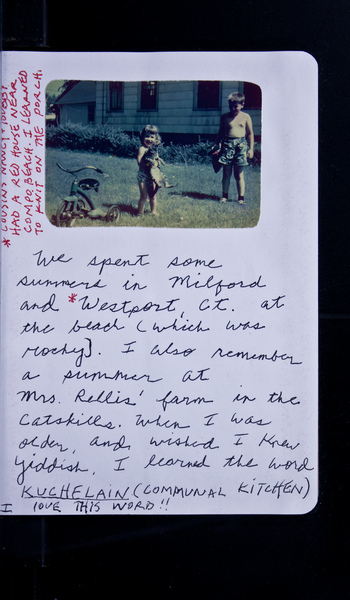 * COUSINS NANCY + JUDY
HAD A RED HOUSE NEAR
COMPO BEACH. I LEARNED
TO KNIT ON THE PORCH.
We spent some
summers in Milford
and *Westport, Ct. at
the beach (which was
rocky). I also remember
a summer at
Mrs. Rellis' farm in the
Catskills. When I was
older, and wished I knew
Yiddish, I learned the word
KUCHELAIN (COMMUNAL KITCHEN)
I LOVE THIS WORD!!